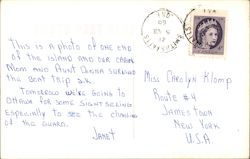 This is a photo of one end
of the island and our cabin
Mom and Aunt Donna survived
the boat trip O.K.
Tomorrow we're going to
Ottawa for some sight seeing
especially to see the changing
of the guard.
Janet
Miss Carolyn Klomp
Route #4
Jamestown
New York
U.S.A.